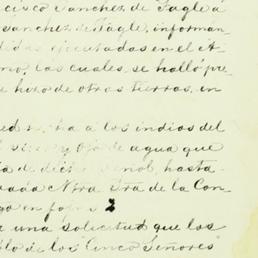 cisco Sanchez de Tagle á
Sanchez de Tagle, informan-
didas ejecutadas en el A-
mo, las cuales, se halló pre-
e hizo de otras tierras, en
ha a los indios del
y Ojo de agua que
hasta
Ntra. Sra de la Con-
go en fojas 2
a una solicitud que los
blo de los Cinco Señores